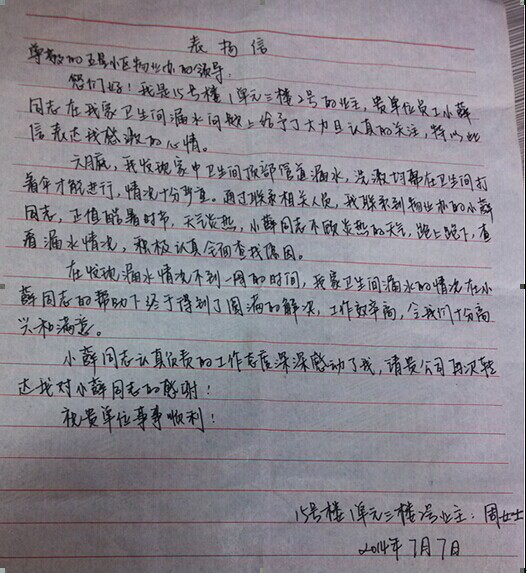 表扬信
尊敬的五号小区物业办的领导，
您们好！我是15号楼1单元三楼2号的业主，贵单位员工小薛
同志在我家卫生间漏水问题上给予了大力且认真的关注，特以此
信表达我感激的心情。
六月底，我发现家中卫生间顶部管道漏水，洗漱时都在卫生间打
着伞才能进行，情况十分窘迫。通过联系相关人员，我联系到物业办的小薛
同志，正值酷暑时节，天气炎热，小薛同志不顾炎热的天气，跑上跑下，查
看漏水情况，积极认真全面查找原因。
在发现漏水情况不到一周的时间，我家卫生间漏水的情况在小
薛同志的帮助下终于得到了圆满的解决，工作效率高，令我们十分高
兴和满意。
小薛同志认真负责的工作态度深深感动了我，请贵公司再次转
达我对小薛同志的感谢！
祝贵单位事事顺利！
15号楼1单元三楼2号业主：周女士
2014年7月7日